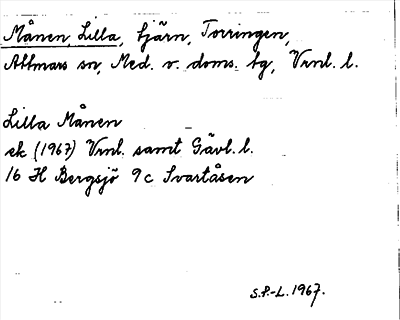 Månen, Lilla, tjärn, Torringen,
Attmars sn, Med. v. doms. tg, Vrnl. l.
Lilla Månen
ek (1967) Vrnl. samt Gävl. l.
16 H Bergsjö 9 c Svartåsen
S.P.-L. 1967.